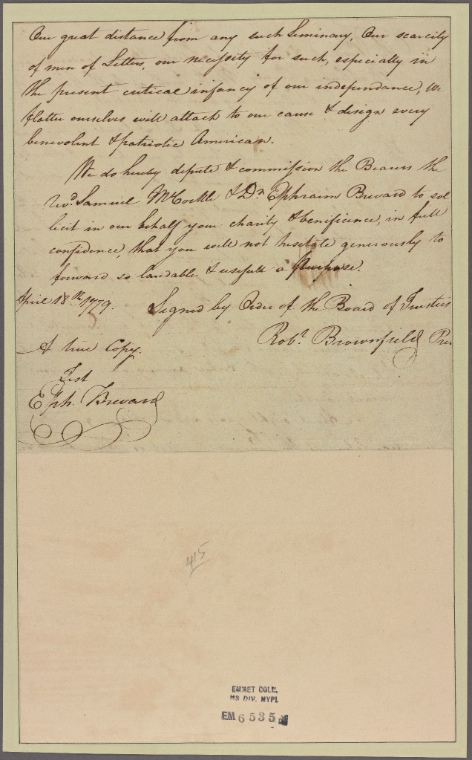 Our great distance from any such Seminary, Our scarcity
of men of Letters, our necessity for such, especially in
the present critical infancy of our independance, we
flatter ourselves will attach to our cause & design every
benevolent & patriotic American.
We do hereby depute & commission the Bearers the
Revd. Samuel McCorkle & Dr. Ephraim Brevard to sol
licit in our behalf your charity & beneficence, in full
confidence, that you will not hesitate generously to
forward so laudable & usefull a purpose.
April 18th. 1779. Signed by Order of the Board of Trustees
Robt. Brownfield Pres
A true Copy.
Test
Eph. Brevard
415
EMMET COLL.
MS DIV. NYPL
EM 6535